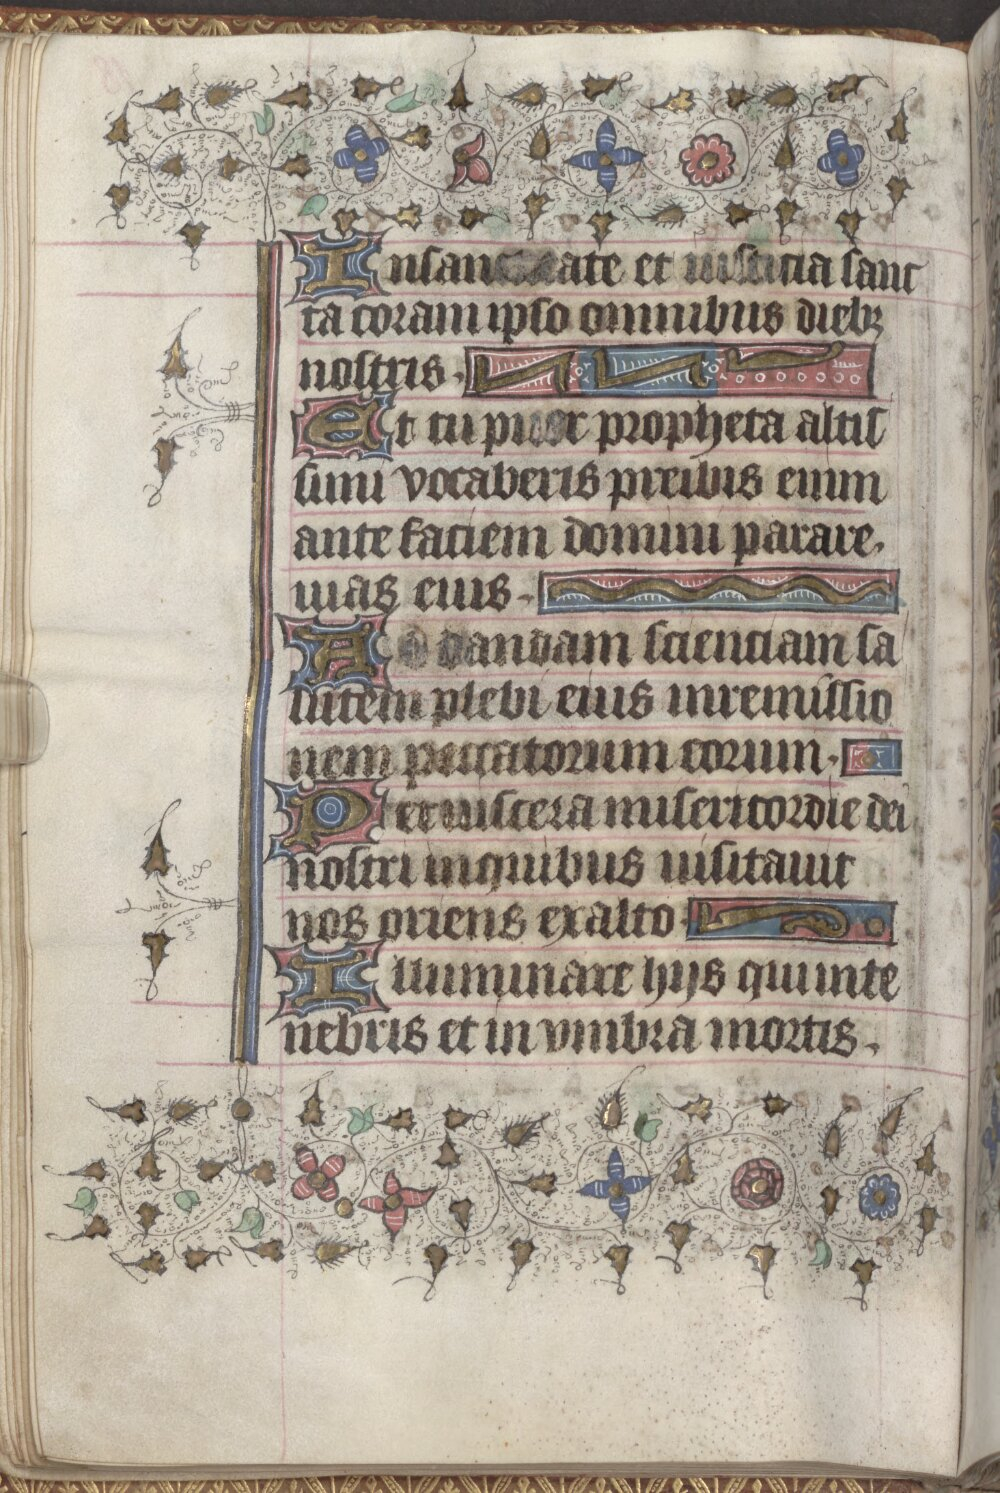 In sanctitate et iusticia sanc
ta coram ipso omnibus diebꝫ
nostris.
Et tu puer propheta altis
simi vocaberis preibis enim
ante faciem domini parare.
uias eius.
Ad dandam scienciam sa
lutem plebi eius inremissio
nem peccatorum eorum.
Per uiscera misericordie dei
nostri inquibus uisitauit
nos oriens exalto
Illuminare hijs qui inte
nebris et in vmbra mortis.